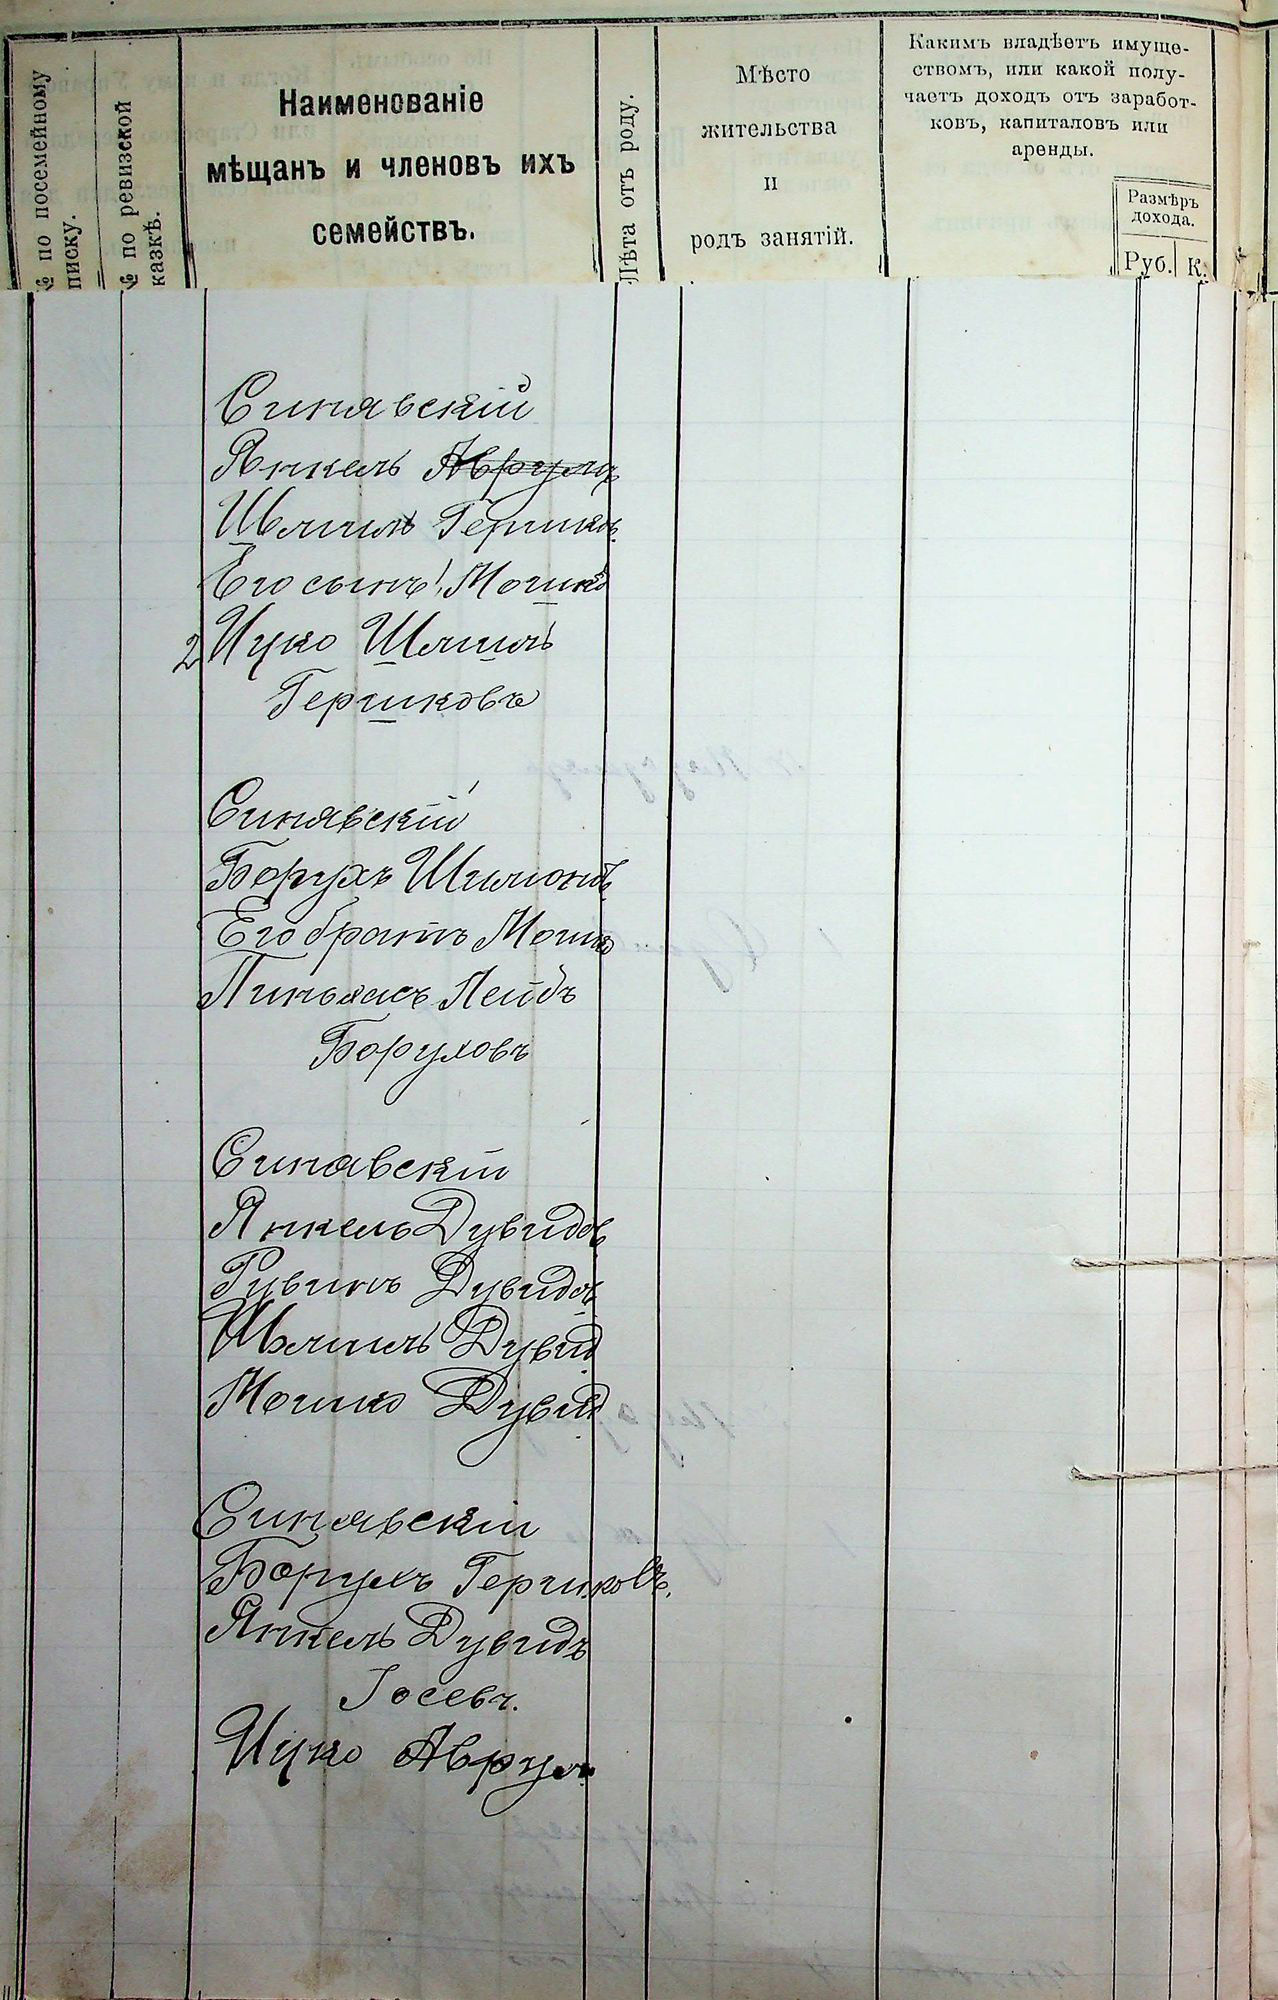 № по посемейному
списку.
№ по ревизской
сказкѣ.
Наименованіе
мѣщанъ и членовъ ихъ
семействъ.
Лѣта отъ роду.
Мѣсто
жительства
и
родъ занятій.
Какимъ владѣетъ имуще-
ствомъ, или какой полу-
чаетъ доходъ отъ заработ-
ковъ, капиталовъ или
аренды.
Размѣръ
дохода.
Руб. К.
Синявскій
Янкель Аврумъ
Шмиль Гершков
Его сынъ 1, Мошко
2 Ицко Шмиль
Гершковъ
Синявскій
Борухъ Шимонъ
Его братъ Мошко
Пинхасъ Лейбъ
Боруховъ
Синявскій
Янкель Дувидов
Рувинъ Дувидов
Шмиль Дувид
Мошко Дувид
Синявскій
Борухъ Гершковъ.
Янкель Дувидъ
Іосевъ.
Ицко Аврум